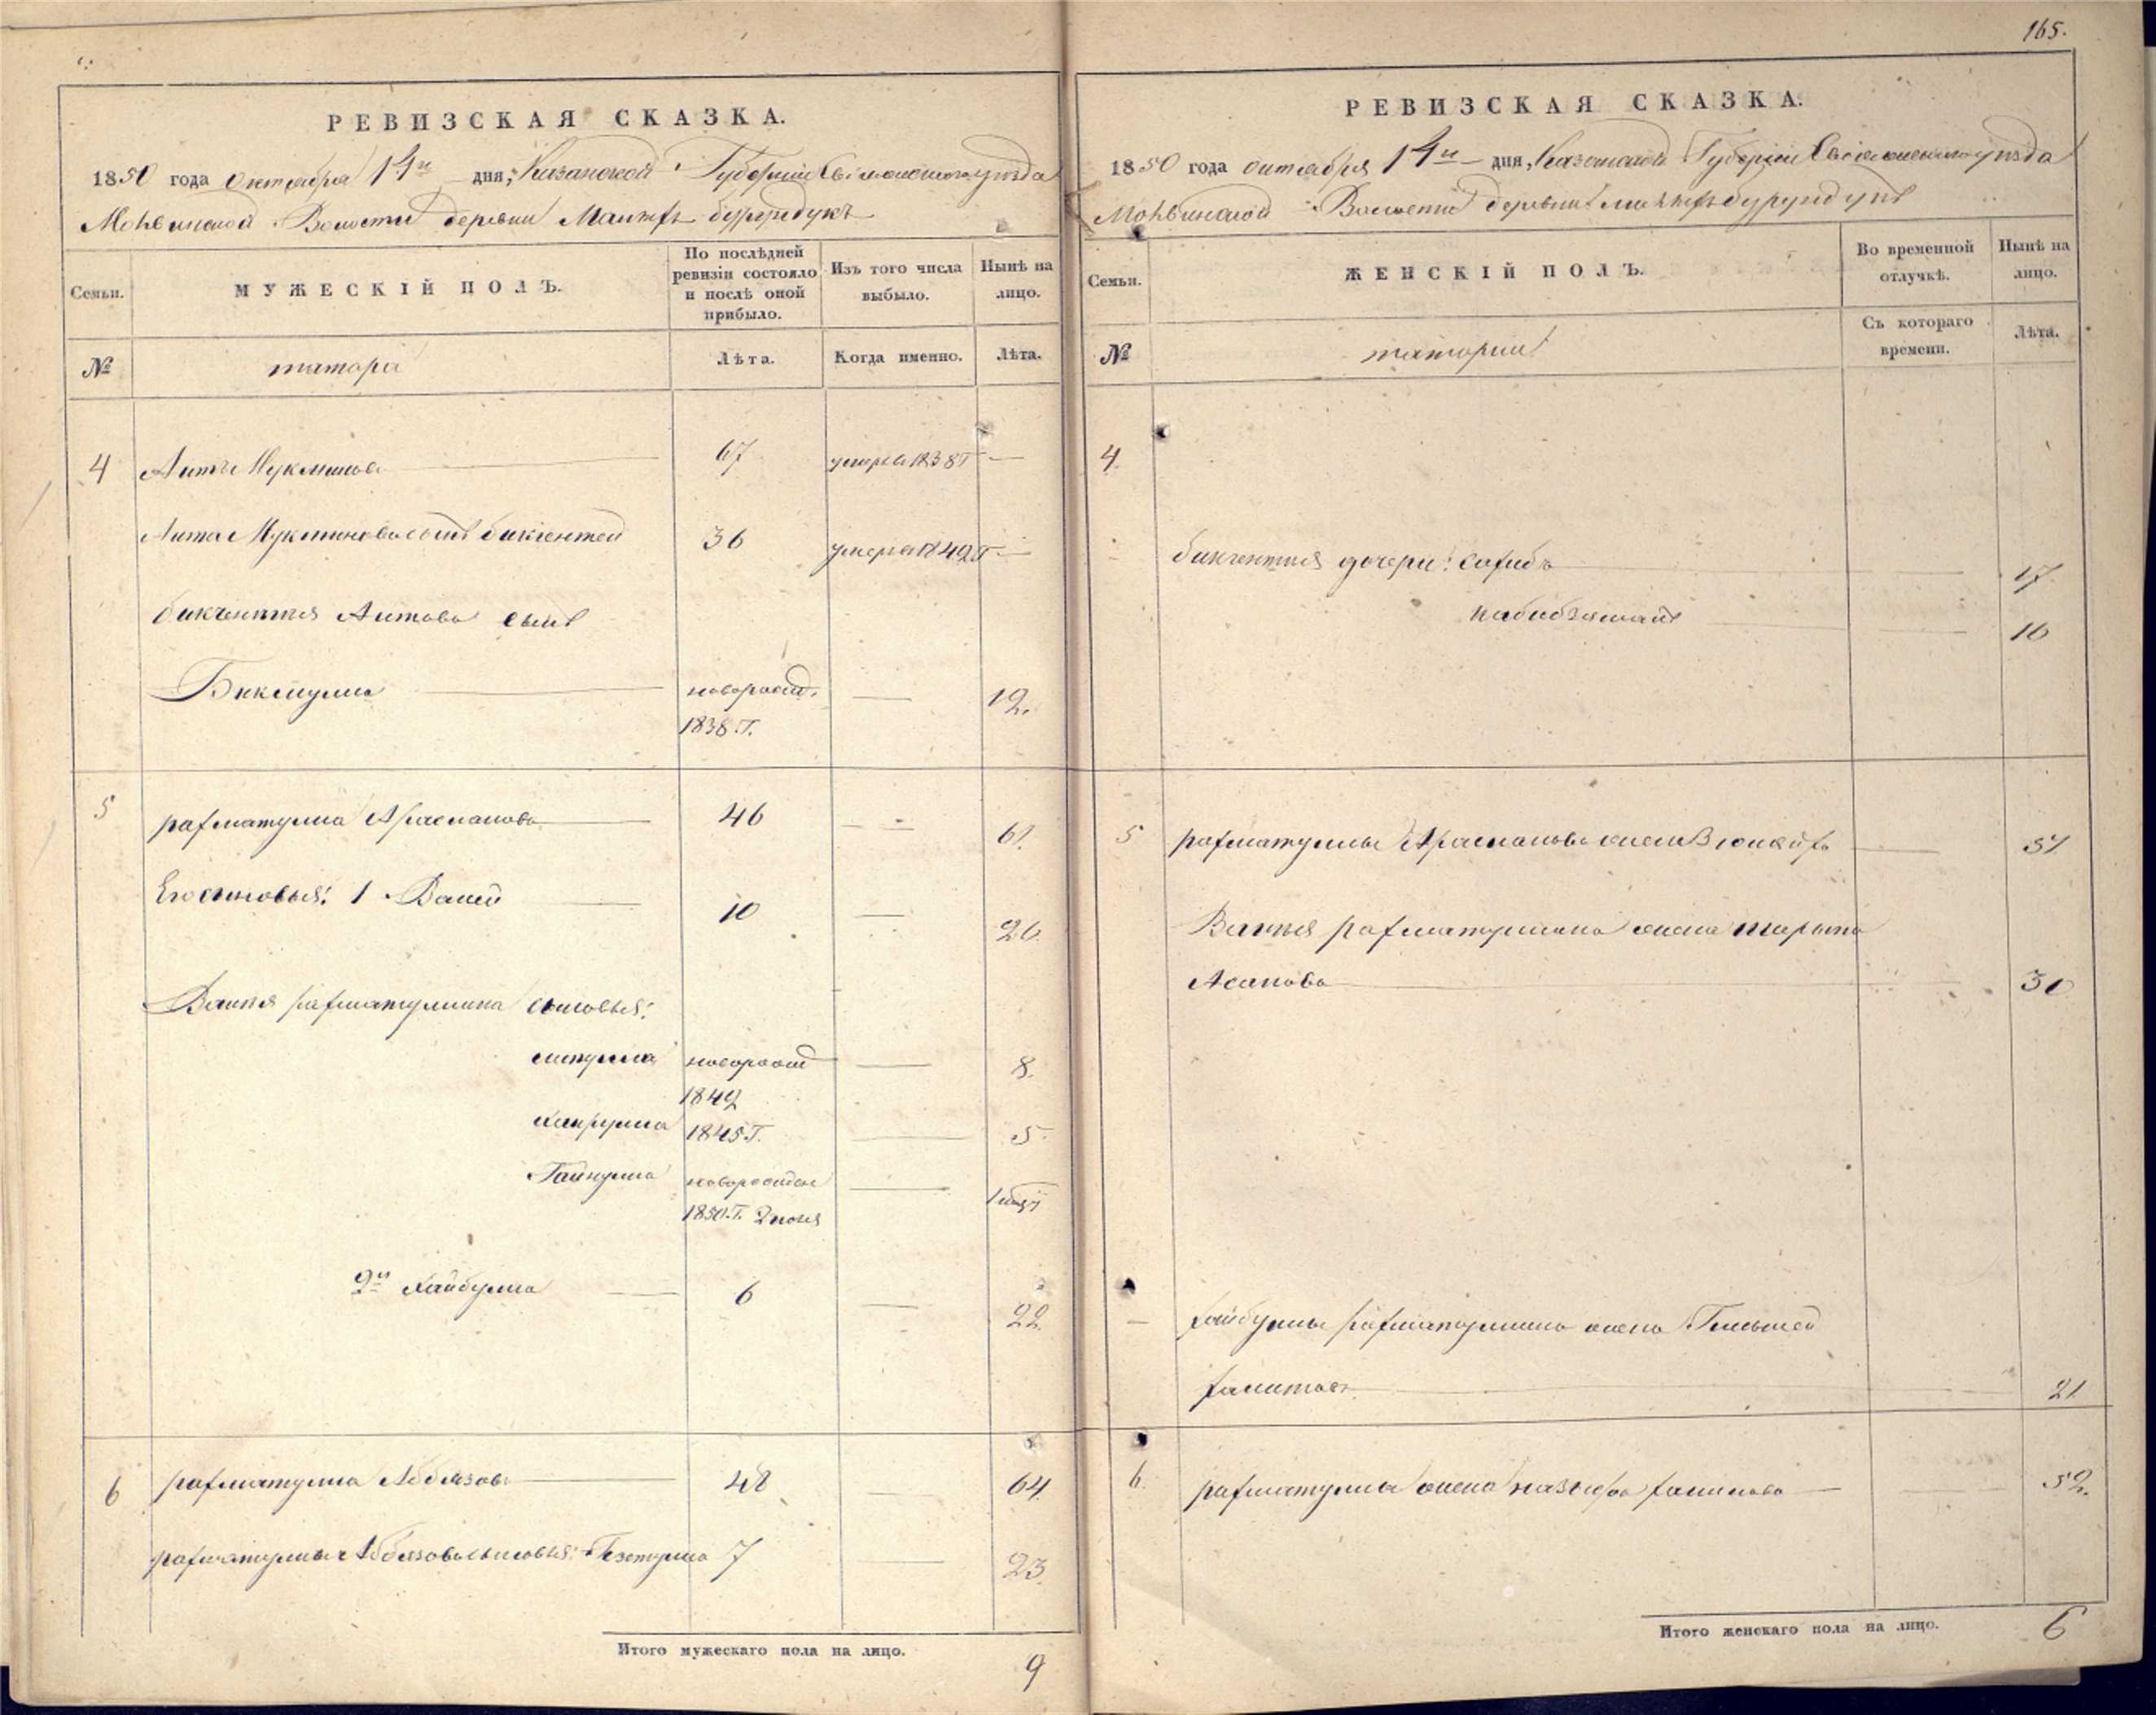 165.
РЕВИЗСКАЯ СКАЗКА.
1850 года октября 14го дня, Казанской Губернии Свіяжскаго уѣзда
Волости деревни бурундукъ
Семьи.
МУЖЕСКІЙ ПОЛЪ.
По послѣдней ревизіи состояло и послѣ оной прибыло.
Изъ того числа выбыло.
Нынѣ на лицо.
№
татара
Лѣта.
Когда именно.
Лѣта.
4 Аитъ Мукминовъ 67 умеръ 1838 Г
Аита Мукминова сынъ бикчентей 36 умеръ 1849 Г
бикчентея Аитова сынъ
Бикмулла новорожд. 12.
1838.Г.
5 рахматулла Арасланова 46 61.
Его сыновья: 1 Валей 10 26.
Валея рахматуллина сыновья:
новорожд 8.
1842
хайрулла 1845.Г. 5.
Гайнулла новорожден
1850.Г. 2 июня
2й хайбулла 6 22.
6 рахматулла Аббязовъ 48 64.
рахматуллы Аббязова сыновья: 7 23.
Итого мужескаго пола на лицо.
9
РЕВИЗСКАЯ СКАЗКА.
1850 года октября 14го дня, Казанской Губерніи Свіяжскаго уѣзда
Волости деревни бурундукъ
Семьи.
ЖЕНСКІЙ ПОЛЪ.
Во временной отлучкѣ.
Нынѣ на лицо.
№
татарки
Съ котораго времени.
Лѣта.
4.
бикчентея дочери: Сахибъ 17.
16
5 рахматуллы Арасланова жена 51
Валея рахматуллина жена
Асанова 30
хайбуллы рахматуллина жена
хамитова 21
6. рахматуллы жена 52.
Итого женскаго пола на лицо.
6